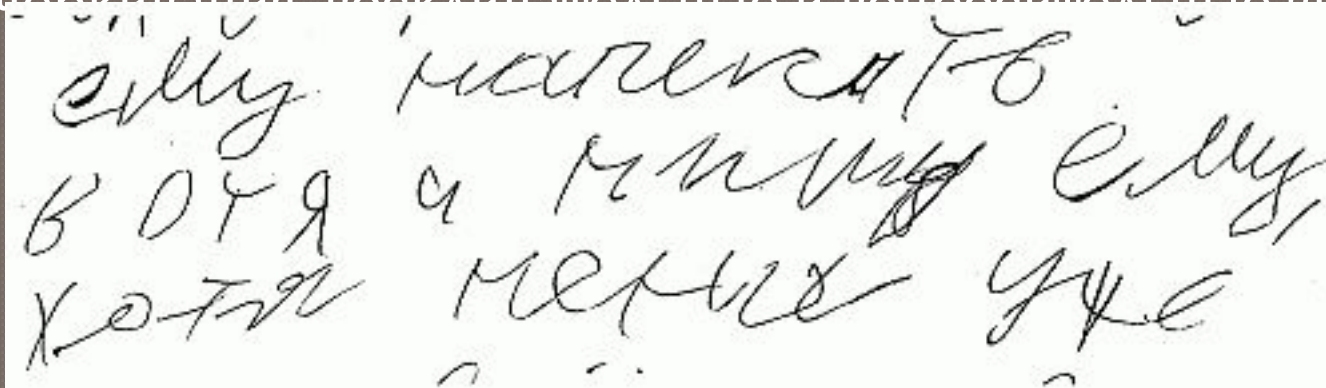 ему написать
вотя и пишу ему,
хотя меня уже